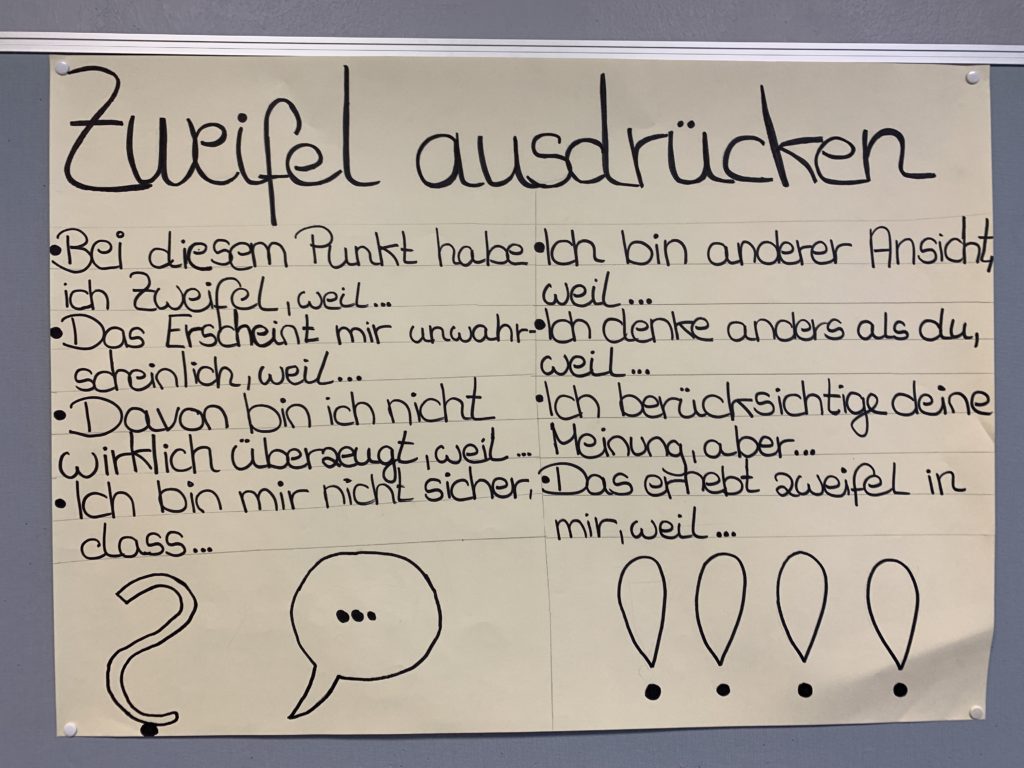 Zweifel ausdrücken
•Bei diesem Punkt habe
ich Zweifel, weil...
•Das Erscheint mir unwahr-
scheinlich, weil...
•Davon bin ich nicht
wirklich überzeugt, weil...
•Ich bin mir nicht sicher,
dass...
•Ich bin anderer Ansicht,
weil...
•Ich denke anders als du,
weil...
•Ich berücksichtige deine
Meinung, aber...
•Das erhebt zweifel in
mir, weil...
?
...
! ! ! !